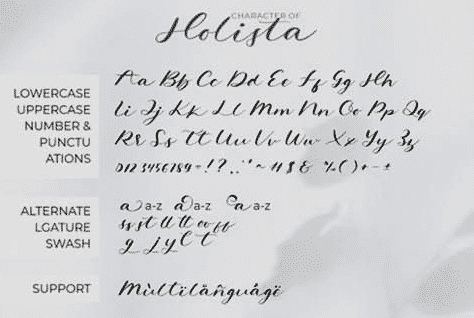 CHARACTER OF
Holista
LOWERCASE
UPPERCASE
NUMBER &
PUNCTU
ATIONS
Aa Bb Cc Dd Ee Ff Gg Hh
Ii Jj Kk Ll Mm Nn Oo Pp Qq
Rr Ss Tt Uu Vv Ww Xx Yy Zz
0123456789=!?
ALTERNATE
LGATURE
SWASH
a a-z a a-z a a-z
ss st ll tt oo ff
g j y l t
SUPPORT
Mùltïlåñguågë